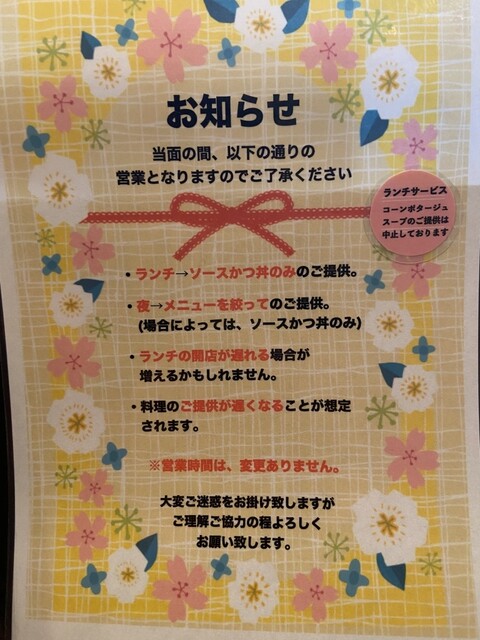 お知らせ
当面の間、以下の通りの
営業となりますのでご了承ください
ランチサービス
コーンポタージュ
スープのご提供は
中止しております
・ランチ→ソースかつ丼のみのご提供。
・夜→メニューを絞ってのご提供。
(場合によっては、ソースかつ丼のみ)
・ランチの開店が遅れる場合が
増えるかもしれません。
・料理のご提供が遅くなることが想定
されます。
※営業時間は、変更ありません。
大変ご迷惑をお掛け致しますが
ご理解ご協力の程よろしく
お願い致します。